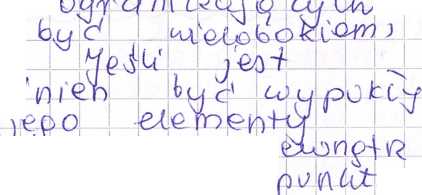 być wielobokiem,
Jeśli jest
nien być wypukły
jego elementy
ewnątrz
punkt